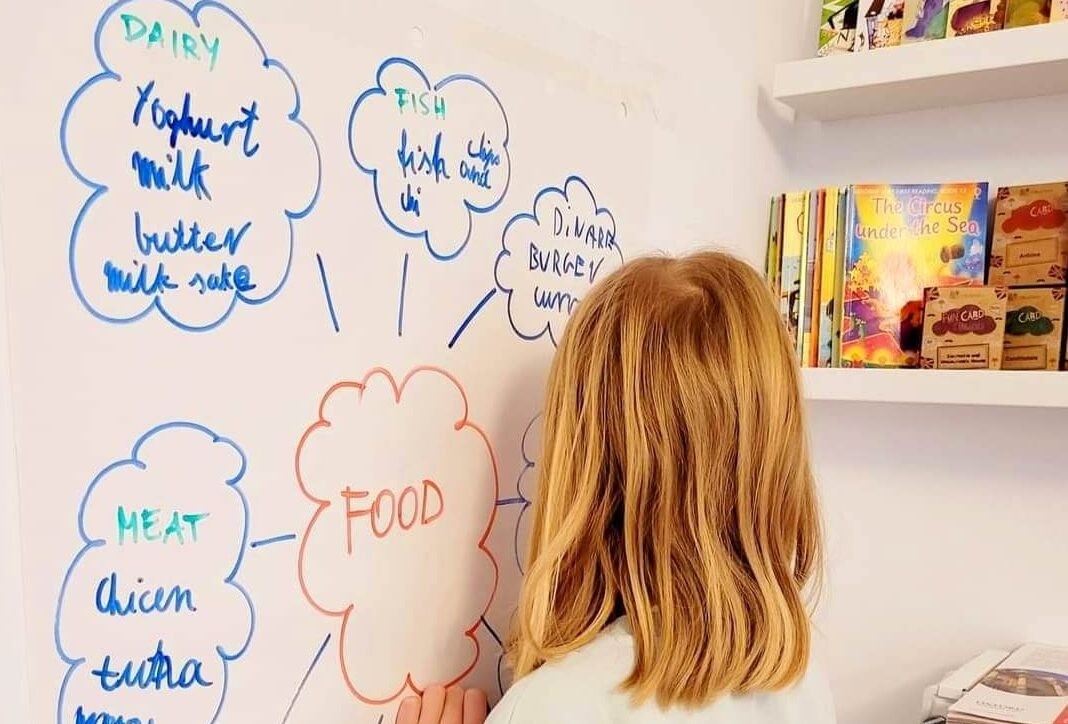 DAIRY
Yoghurt
milk
butter
milk sake
FISH
fish
chips
and
chi
DiNARR
BURGER
curr
FOOD
MEAT
Chicen
tutna
The Circus
under the Sea
CARD
FUN CARD
CARD